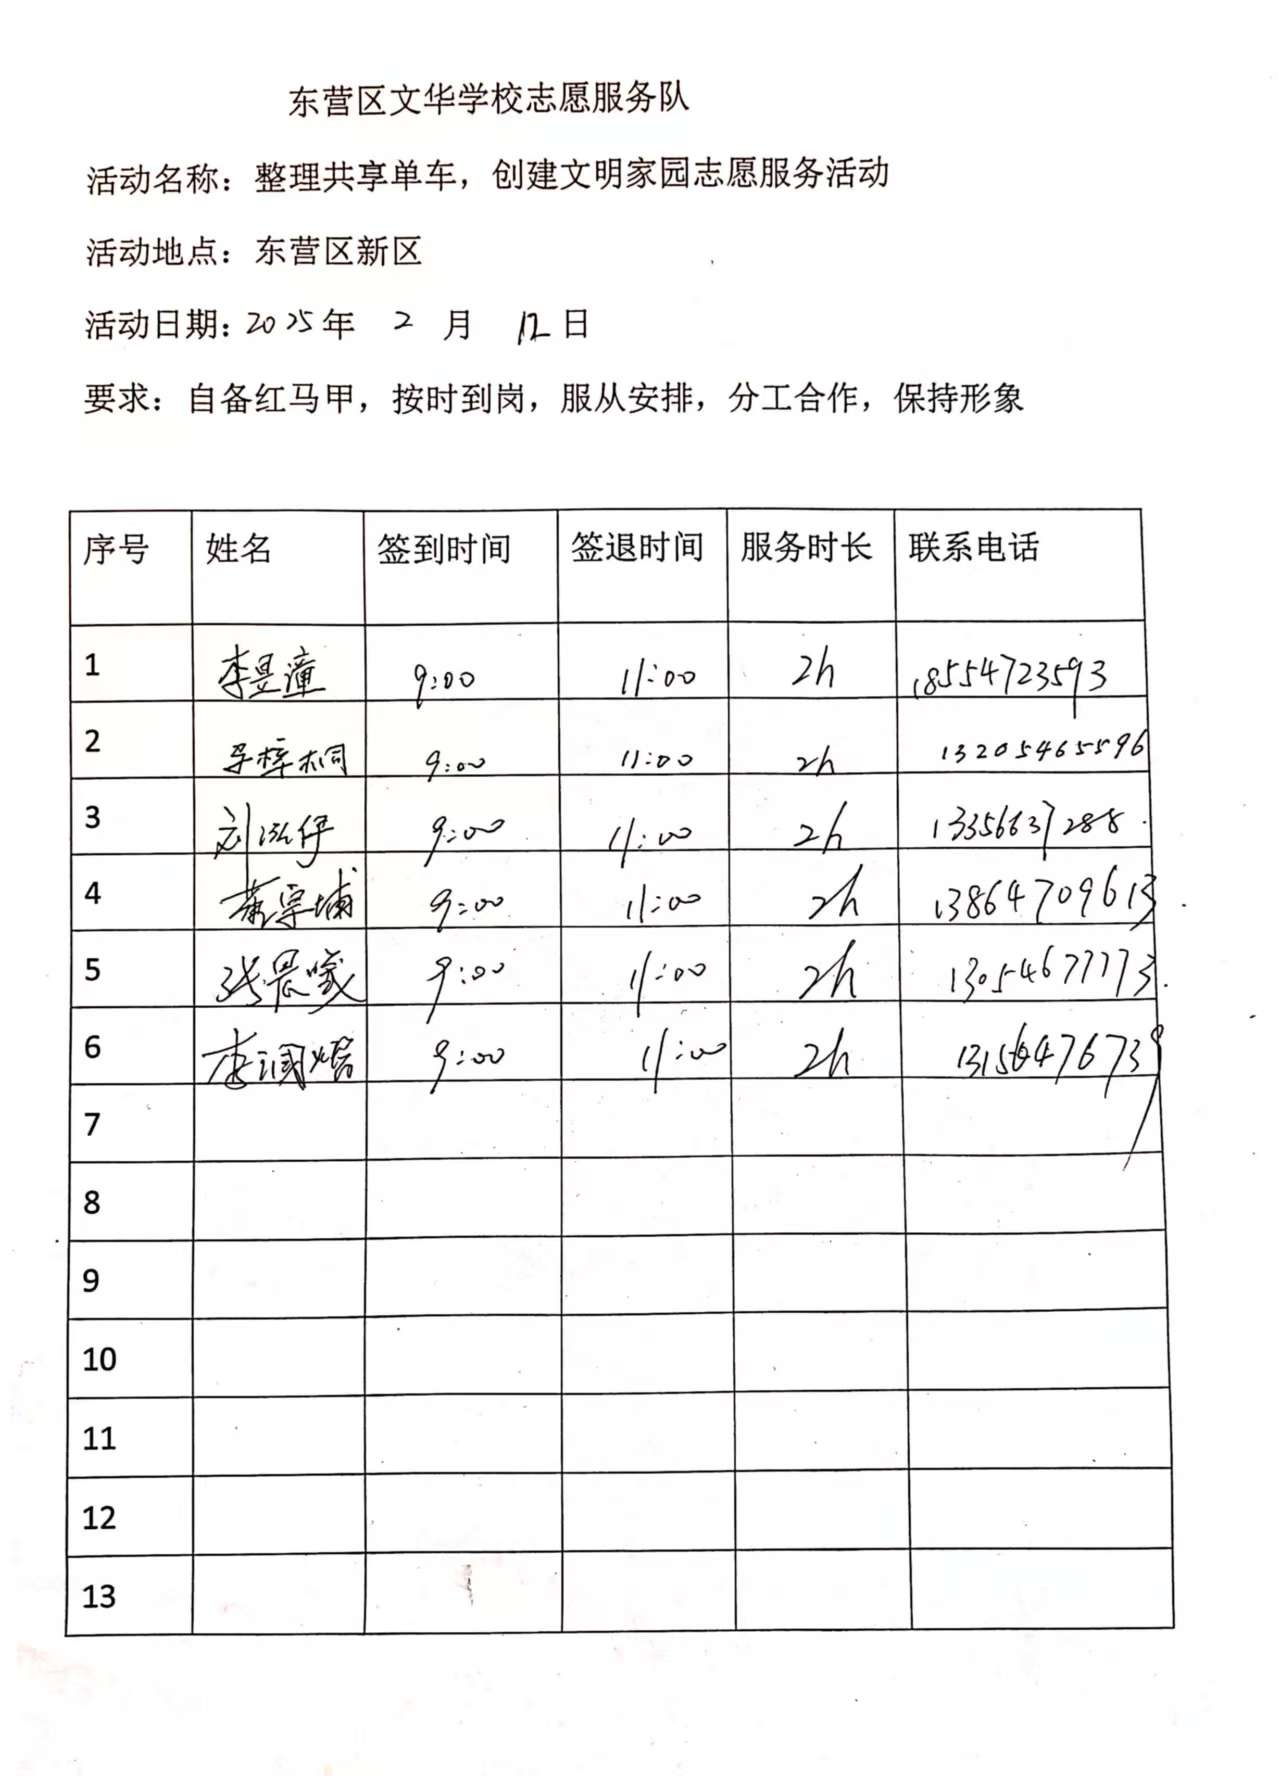 东营区文华学校志愿服务队
活动名称：整理共享单车，创建文明家园志愿服务活动
活动地点：东营区新区
活动日期：2025年 2 月 12日
要求：自备红马甲，按时到岗，服从安排，分工合作，保持形象
序号 姓名 签到时间 签退时间 服务时长 联系电话
1 李昱潼 9:00 11:00 2h 18554723593
2 梓桐 9:00 11:00 2h 13205465596
3 刘泓伊 9:00 11:00 2h 13356637288
4 宗埔 9:00 11:00 2h 13864709613
5 张晨曦 9:00 11:00 2h 13054677773
6 李润熠 9:00 11:00 2h 13156476739
7
8
9
10
11
12
13